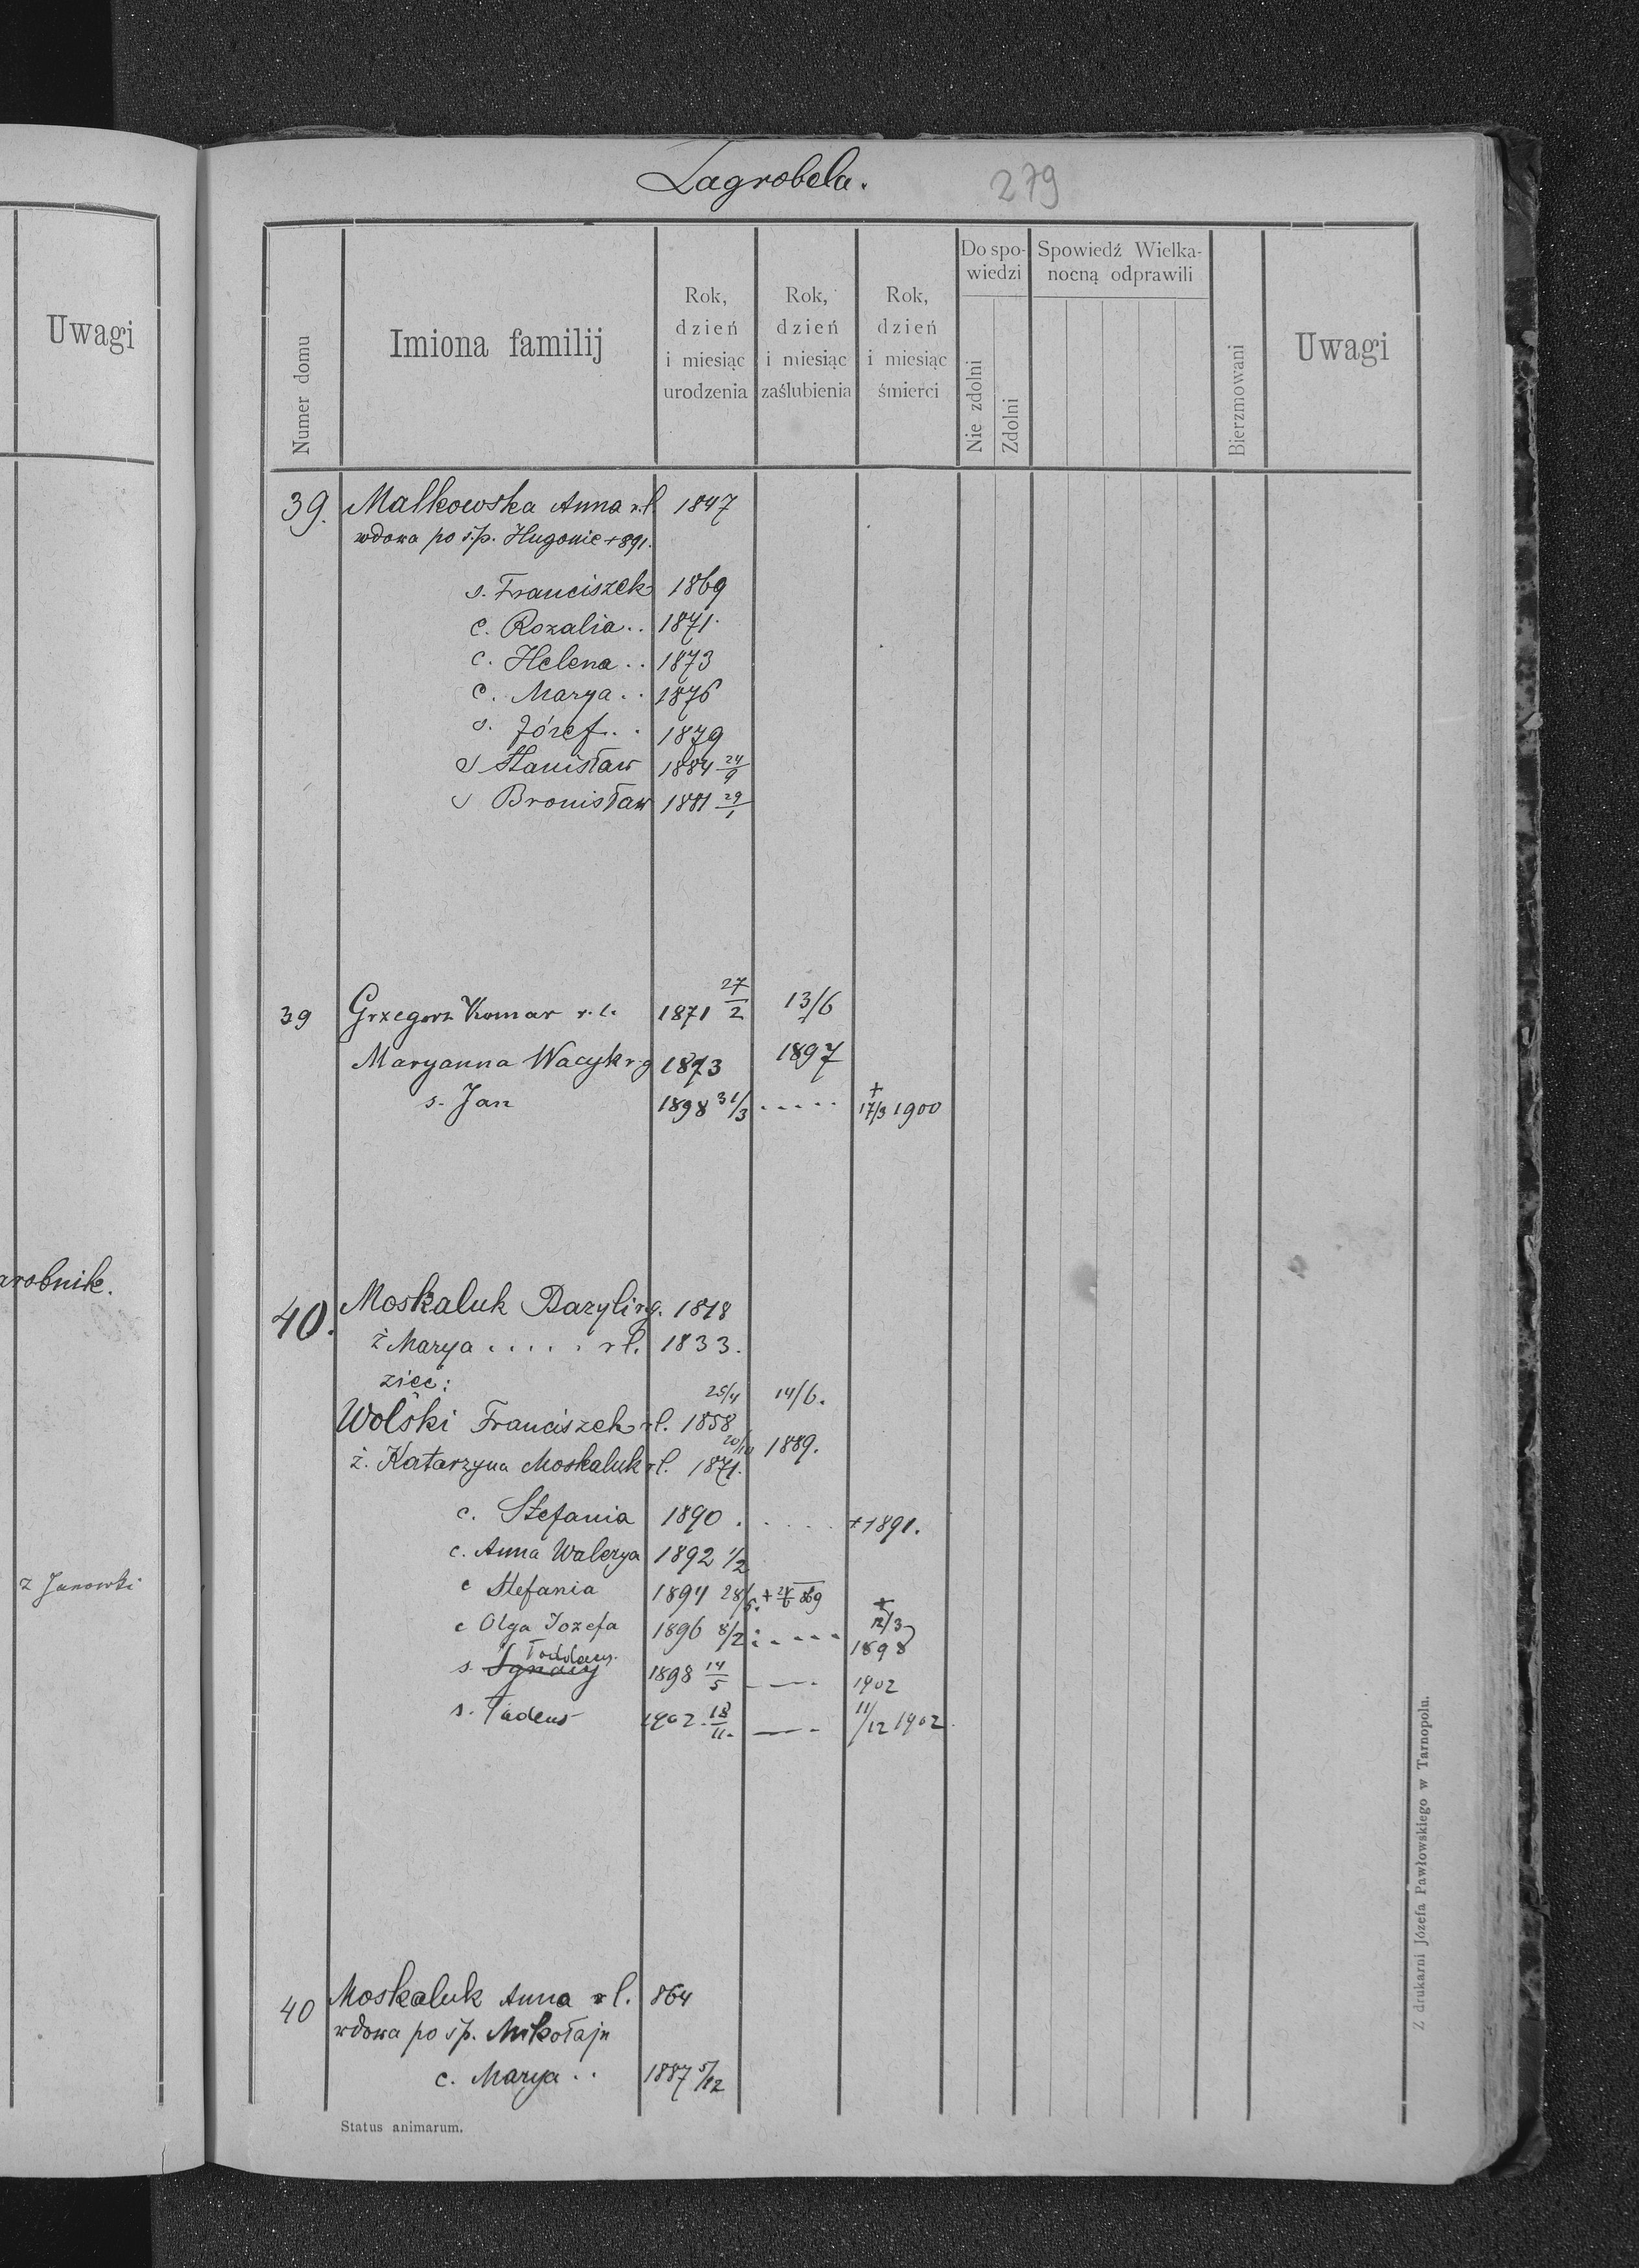 Zagrobela.
279
Uwagi
arobnik.
z Janowki
Numer domu
Imiona familij
Rok, dzień i miesiąc urodzenia
Rok, dzień i miesiąc zaślubienia
Rok, dzień i miesiąc śmierci
Do spowiedzi
Nie zdolni
Zdolni
Spowiedź Wielkanocną odprawili
Bierzmowani
Uwagi
39. Malkowska Anna r.l. 1847
wdowa po ś.p. Hugonie +891.
s. Franciszek 1869
c. Rozalia . . 1871.
c. Helena . . 1873
c. Marya . . 1876
s. Józef . . 1879
s Stanisław 1884 24/9
s Bronisław 1881 29/1
39 Grzegorz Komar r.l. 1871 27/2 13/6
Maryanna Wacyk r.g 1873 1897
s. Jan 1898 31/3 . . . . . + 17/3 1900
40. Moskaluk Bazyli rg. 1818
ż Marya . . . . . rl. 1833.
zięć:
Wolski Franciszek rl. 1858 25/4 14/6.
ż. Katarzyna Moskaluk rl. 1871. 20/10 1889.
c. Stefania 1890 . . . . . +1891.
c. Anna Walerya 1892 1/2
c Stefania 1894 28/5. +
c Olga Jozefa 1896 8/2 . . . . . + 12/3 1898
s. Ignacy 1898 14/5 1902
s. Tadeus 1902 18/11. 11/12 1902.
40 Moskaluk Anna rl. 864
wdowa po śp. Mikołaju
c. Marya . . 1887 5/12
Status animarum.
Z drukarni Józefa Pawłowskiego w Tarnopolu.